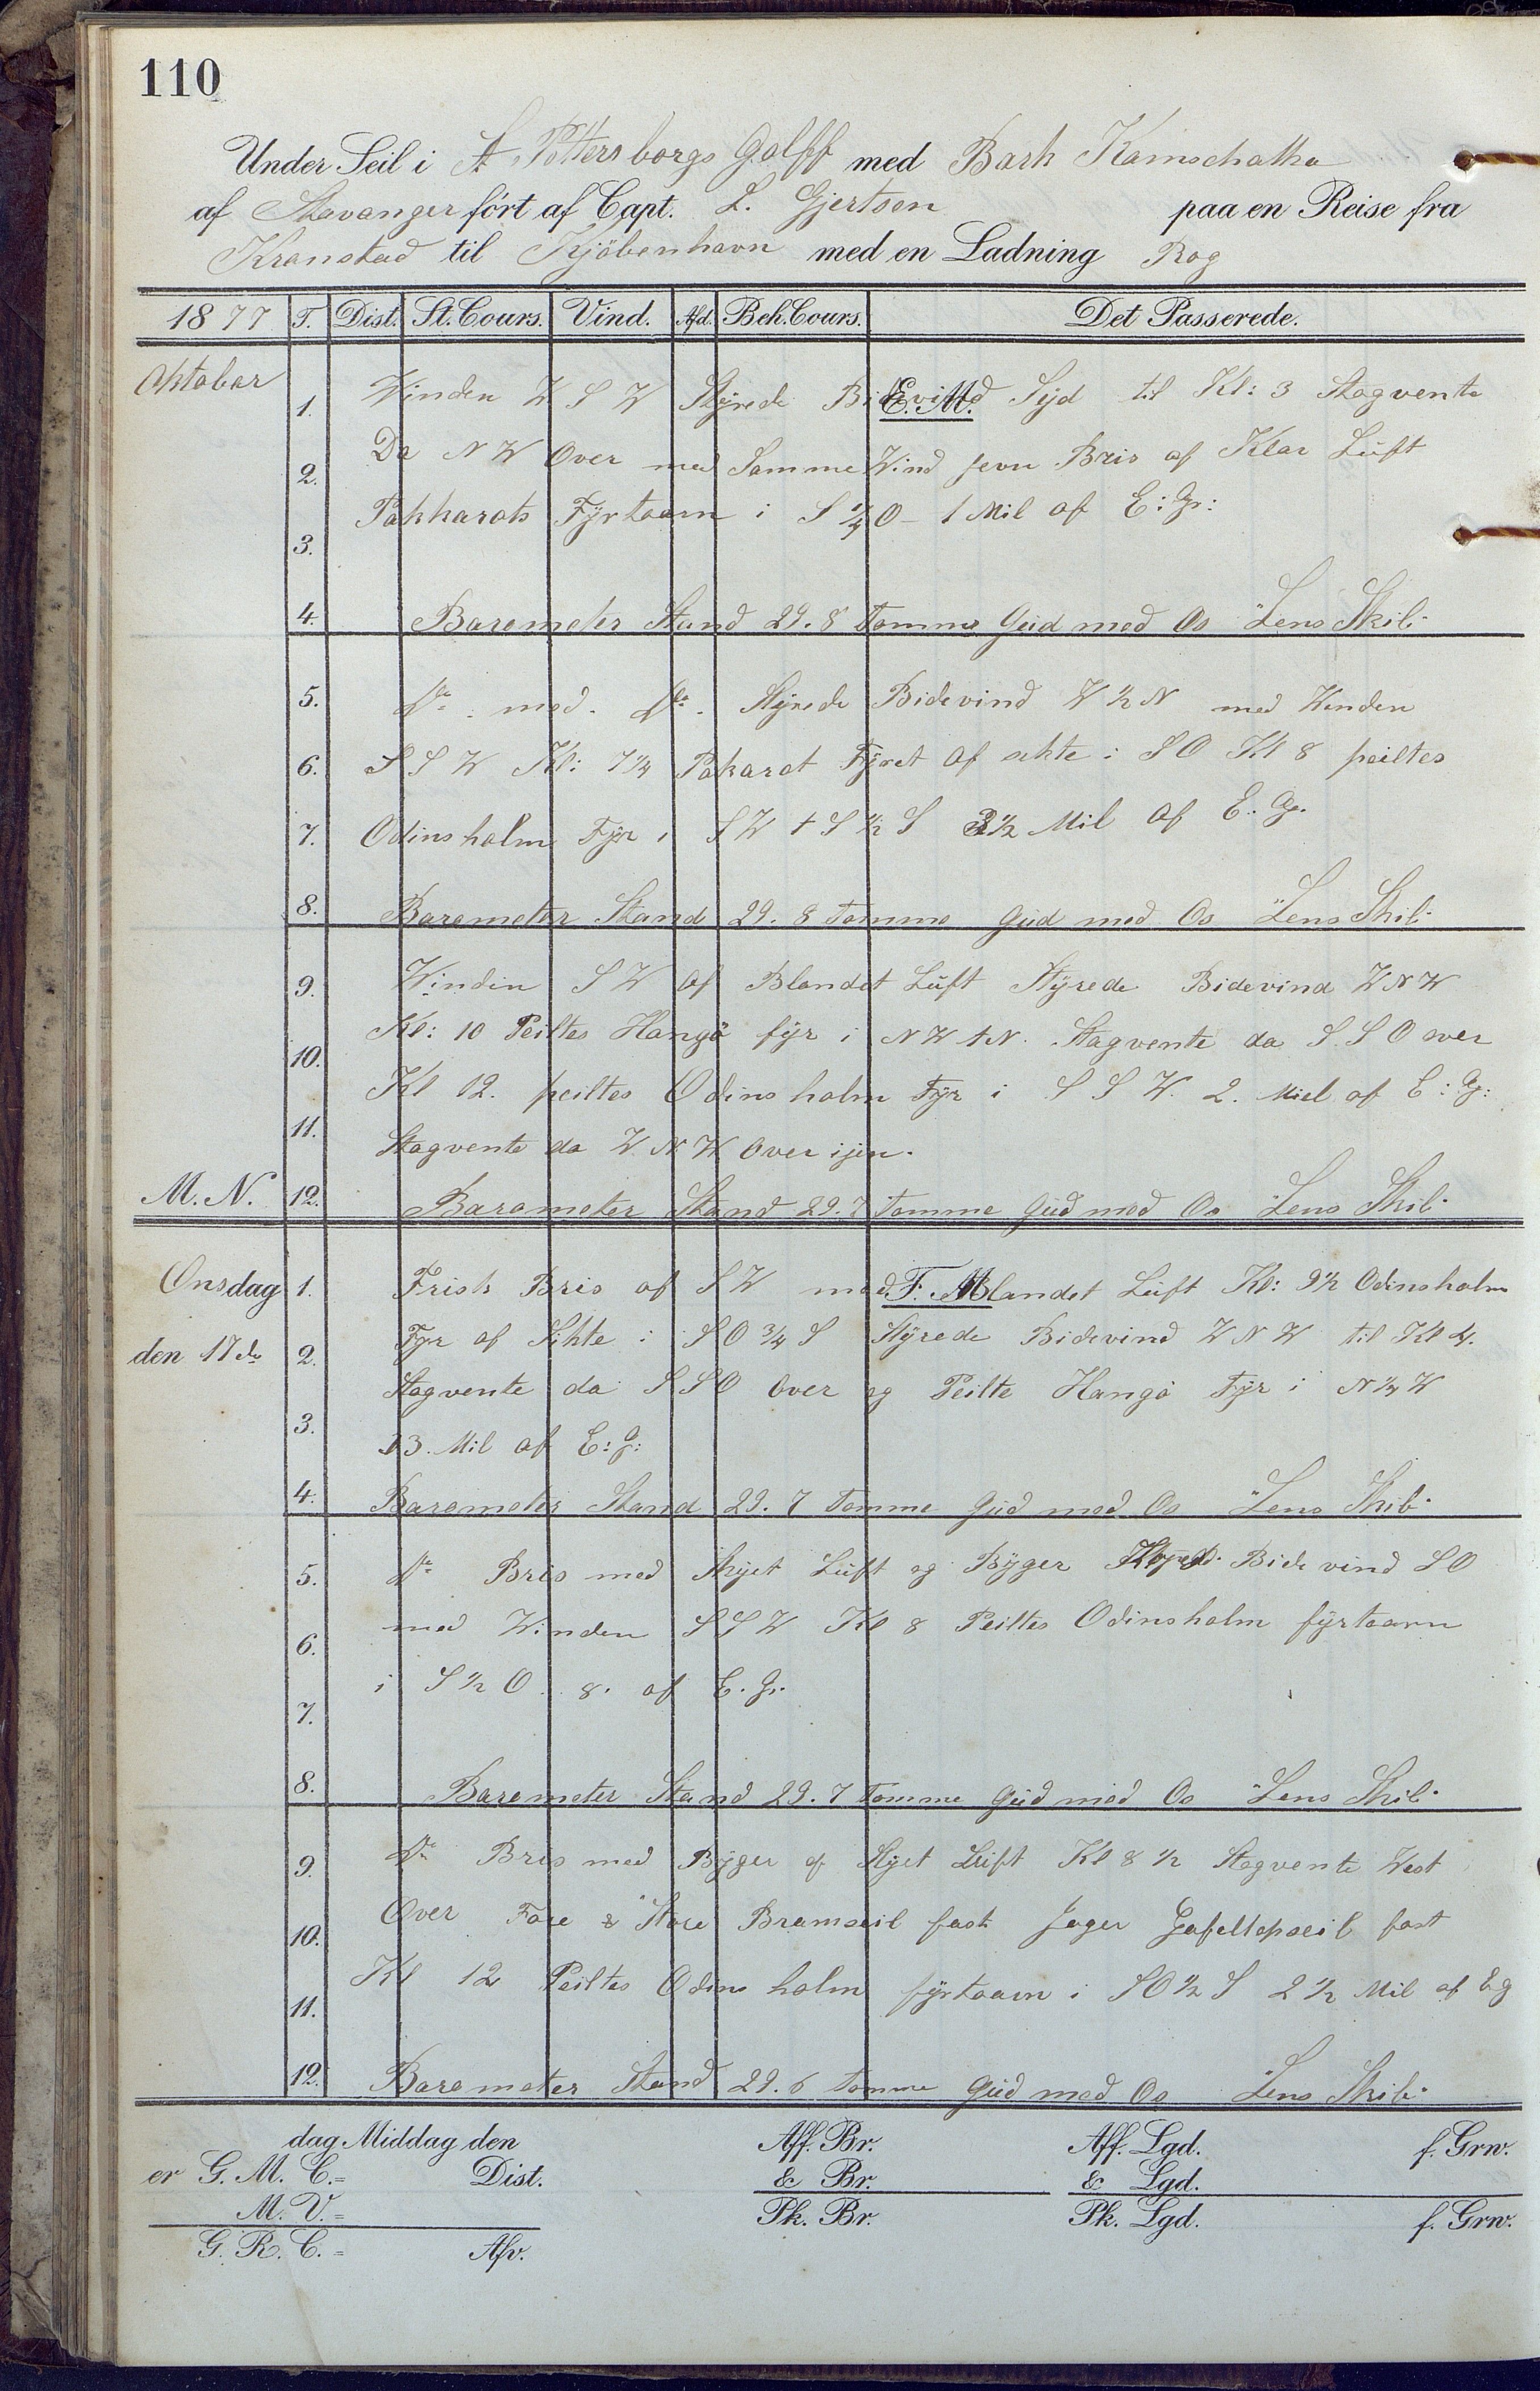 110
Under Seil i St Pettersborgs Golff med Bark Kamschatka
af Stavanger fört af Capt. L. Gjertsen paa en Reise fra
Kronstad til Kjöbenhavn med en Ladning Rog
1877 T. Dist. St. Cours. Vind. Afd. Beh. Cours. Det Passerede.
Oktober
E. M.
1. Winden W S W Styrede Bidevind Syd til Kl: 3 Stagvente
2. Da N W Over med Samme Wind jevn Bris af Klar Luft
Pakkarots Fyrtaarn i S 1/4 O - 1 Mil af E: G:
3.
4. Barometer Stand 29.8 Tomme Gud med Os Lens Skib
5. Do med Do Styrede Bidevind W 1/2 N med Vinden
6. S S W Kl: 7 1/4 Pakarot Fyret af sekte i S O Kl 8 peiltes
7. Odinsholm Fyr i S W t S 1/2 S 3 1/2 Mil af E. G.
8. Barometer Stand 29.8 Tomme Gud med Os Lens Skib
9. Winden S W af Blandet Luft Styrede Bidevind W N W
Kl: 10 Peiltes Hangö fyr i N W t N. Stagvente da S S O over
10.
Kl 12. peiltes Odinsholm Fyr i S S W. 2. Miel af E: G:
11.
Stagvente da W N W Over ijen.
M. N. 12. Barometer Stand 29.7 Tomme Gud med Os Lens Skib
F. M.
Onsdag 1. Frisk Bris af S W med Blandet Luft Kl: 9 1/2 Odinsholm
den 17de 2. Fyr af Sikte i S O 3/4 S Styrede Bidevind W N W til Kl 4.
Stagvente da S S O Over og Peilte Hangö Fyr i N 1/4 W
3.
13. Mil af E: G:
4. Barometer Stand 29.7 Tomme Gud med Os Lens Skib
5. Do Bris med Skyet Luft og Byger Bidevind S O
med Winden S S W Kl 8 Peiltes Odinsholm fyrtaarn
6.
i S 1/2 O 8. af E. G.
7.
8. Barometer Stand 29.7 Tomme Gud med Os Lens Skib
9. Do Bris med Byger af Skyet Luft Kl 8 1/2 Stagvente West
Over Fore & Store Bramseil fast Jager Gafeltopseil fast
10.
Kl 12 Peiltes Odinsholm fyrtaarn i S O 1/2 S 2 1/2 Mil af E G
11.
12. Barometer Stand 29.6 Tomme Gud med Os Lens Skib
dag Middag den Aff. Br. Aff. Lgd. f. Grw.
er G. M. C.= Dist. & Br. & Lgd.
M. V.= Pk. Br. Pk. Lgd. f. Grw.
G. R. C. = Afv.